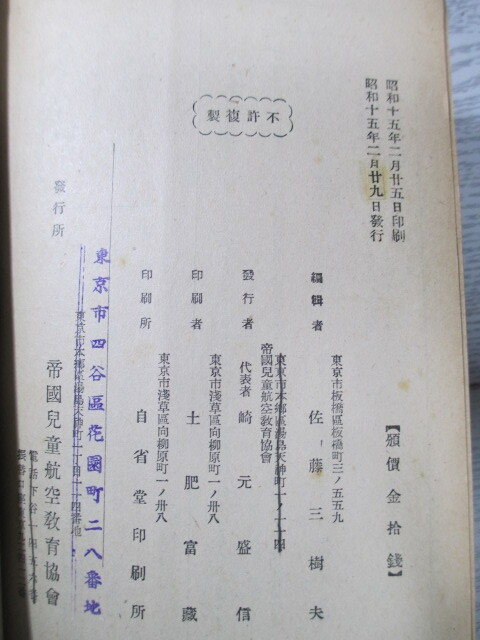 昭和十五年二月廿五日印刷
昭和十五年二月廿九日發行
不許複製
【頒價金拾錢】
東京市板橋區板橋町三ノ五五九
編輯者 佐藤三樹夫
東京市本鄕區湯島天神町一ノ一一四
帝國兒童航空敎育協會
發行者 代表者 崎元盛信
東京市淺草區向柳原町一ノ卅八
印刷者 土肥富藏
東京市淺草區向柳原町一ノ卅八
印刷所 自省堂印刷所
東京市四谷區花園町二八番地
東京市本鄕區湯島天神町一丁目一一四番地
發行所 帝國兒童航空敎育協會
電話下谷